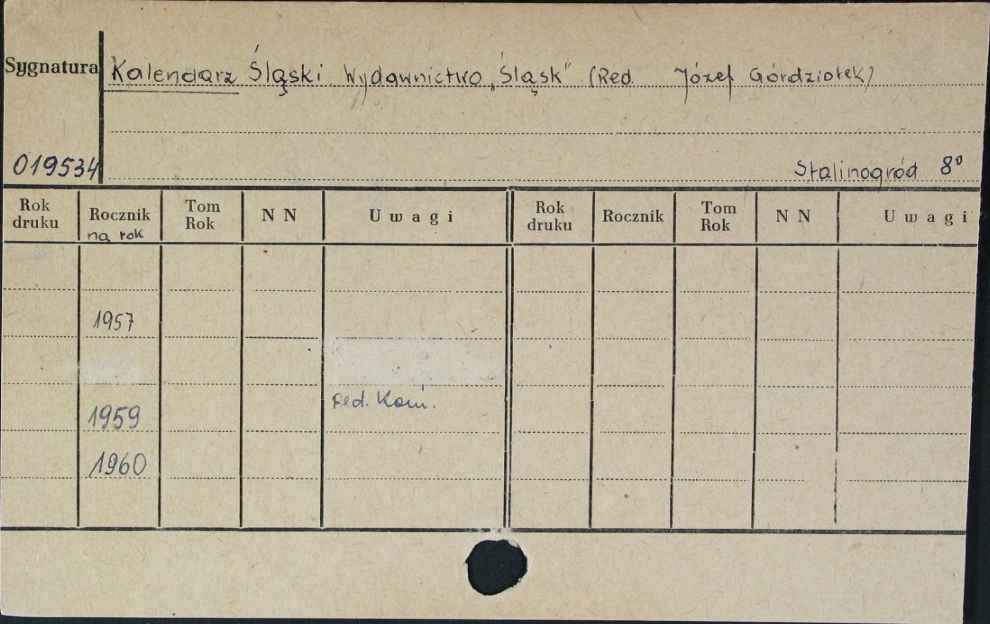 Sygnatura Kalendarz Śląski Wydawnictwo „Śląsk" (Red. Józef Górdziołek)
019534 Stalinogród 8°
Rok druku Rocznik na rok Tom Rok N N Uwagi Rok druku Rocznik Tom Rok N N Uwagi
1957
1959 Red. Kom.
1960